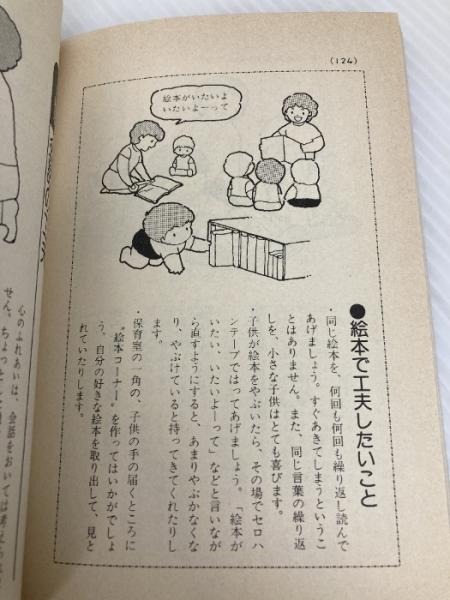 (124)
絵本がいたいよ
いたいよーって
●絵本で工夫したいこと
・同じ絵本を、何回も何回も繰り返し読んで
あげましょう。すぐあきてしまうというこ
とはありません。また、同じ言葉の繰り返
しを、小さな子供はとても喜びます。
・子供が絵本をやぶいたら、その場でセロハ
ンテープではってあげましょう。「絵本が
いたい、いたいよーって」などと言いなが
ら直すようにすると、あまりやぶかなくな
り、やぶけていると持ってきてくれたりし
ます。
・保育室の一角の、子供の手の届くところに
〝絵本コーナー〟を作ってはいかがでしょ
う。自分の好きな絵本を取り出して、見と
れていたりします。
心のふれあいは、会話をおいては考えら
せん。ちょっとした